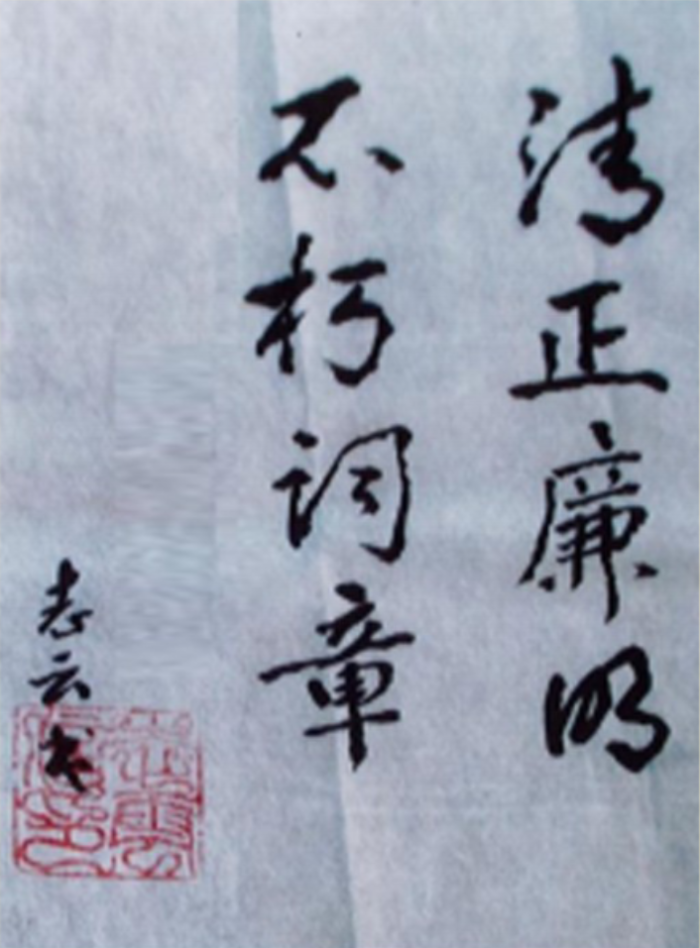 清正廉明
不朽词章
志云书